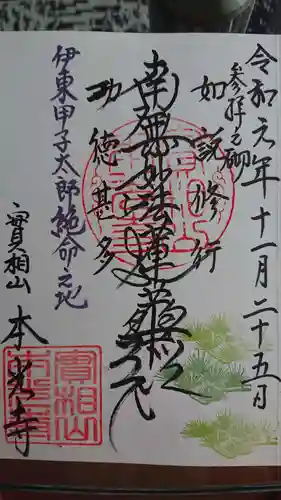 令和元年十一月二十五日
参拝之砌
如説修行
南無妙法蓮華経
功徳甚多
伊東甲子太郎絶命之地
實相山
本光寺
實相山